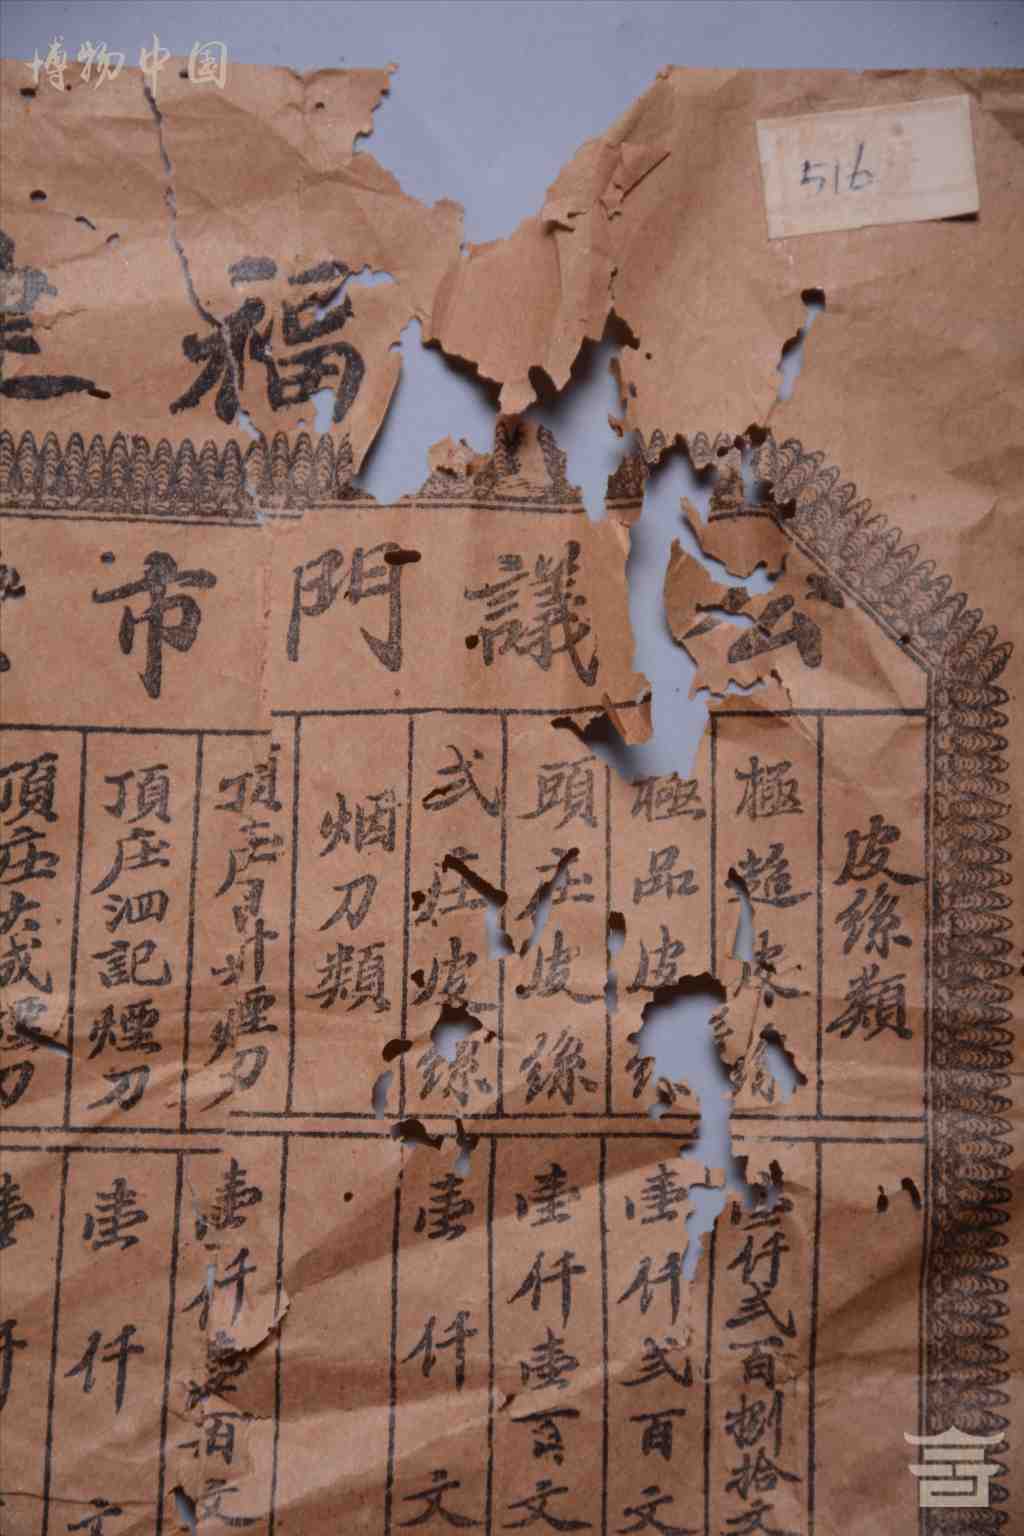 博物中国
516
福建
公議門市
皮絲類
極䔉皮絲
壹仟弍百捌拾文
極品皮絲
壹仟弍百文
頭庄皮絲
壹仟壹百文
弍庄皮絲
壹仟文
烟刀類
煙刀
壹仟
百文
頂庄泗記煙刀
壹仟文
頂庄大成煙刀